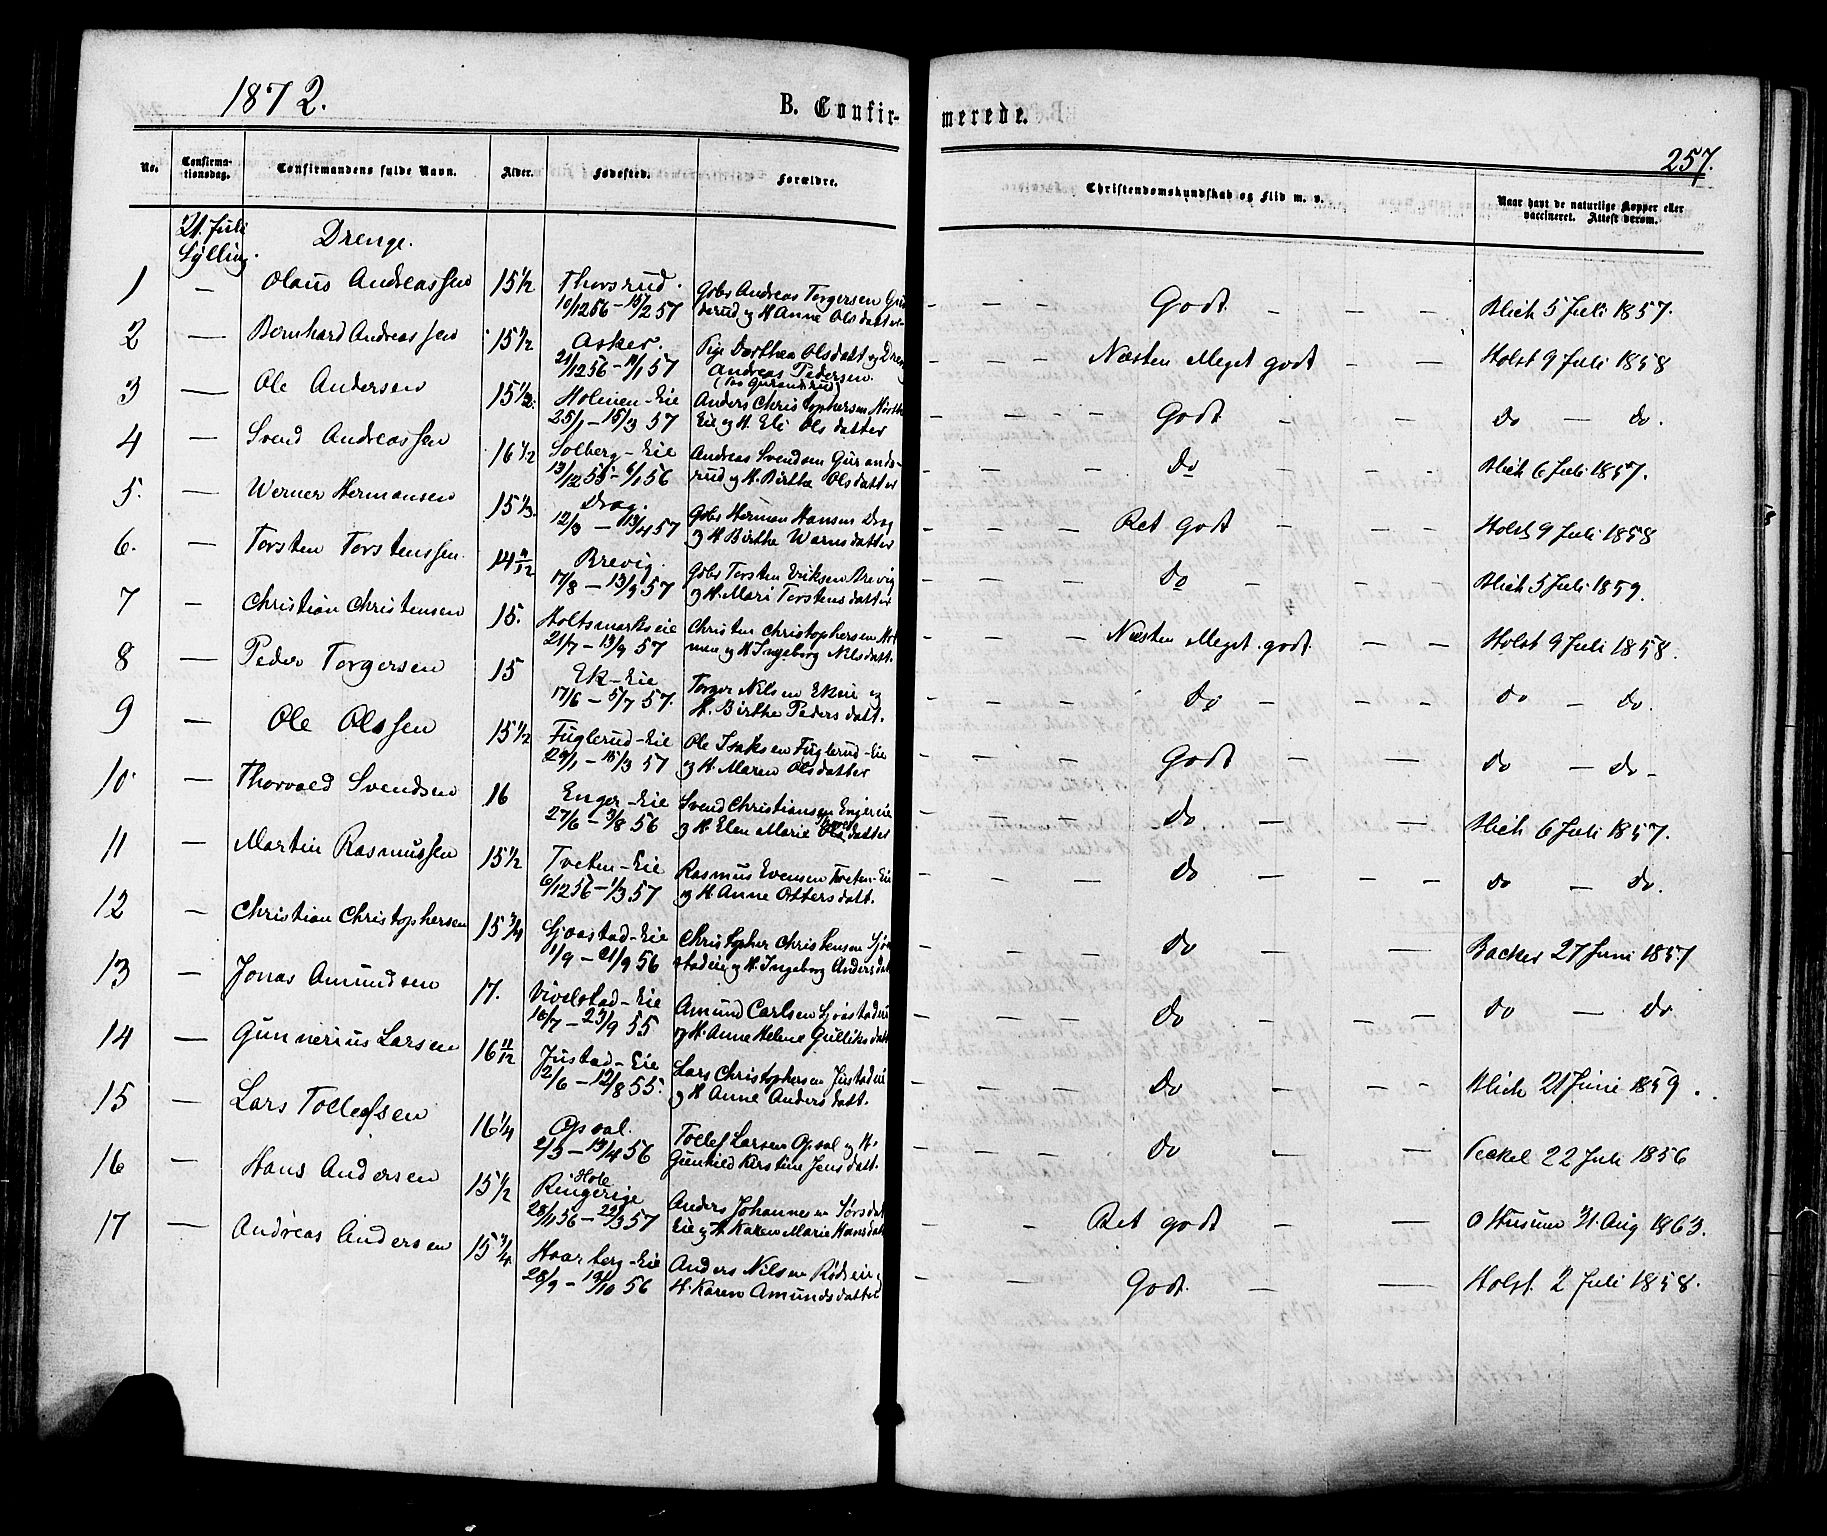 1872.
B. Confir- merede.
257.
No. Confirma- tionsdag. Confirmandens fulde Navn. Alder. Fødested. Forældre. Christendomskundskab og Flid m. v. Naar havt de naturlige Kopper eller vaccineret. Attest derom.
21. Juli
Sylling. Drenge.
1 — Olaus Andreassen 15 1/2 Thorsrud. Gbr Andreas Torgersen
10/12 56 — 15/2 57 og H Anne Olsdatter — — — Godt — — — Blich 5 Juli 1857.
2 — Bernhard Andreassen 15 1/2 Asker. Pige Dorthea Olsdatt og
21/12 56 — 11/1 57 Andreas Pedersen — — — Næsten Meget godt — — Holst 9 Juli 1858
3 — Ole Andersen 15 1/2 Holmen-Eie Anders Christophersen
25/1 — 15/3 57 Eie og H. Eli Olsdatter — — — Godt — — — do — do.
4 — Svend Andreassen 16 1/2 Solberg-Eie Andreas Svendsen Gurands-
13/12 55 — 6/1 56 rud og H. Birthe Olsdatter — — — do — — — Blich 6 Juli 1857.
5. — Werner Hermansen 15 1/3. Drog. Gbr Herman Hansen Drog
12/3 — 13/4 57 og H Birthe Warnsdatter — — — Ret godt — — — Holst 9 Juli 1858
6. — Torsten Torstenssen. 14 11/12 Brevig. Gbr Torsten Eriksen Brevig
17/8 — 13/9 57 og H. Mari Torstensdatter — — — do — — — Blich 5 Juli 1859.
7 — Christian Christensen 15. Holtsmarkseie Christen Christophersen Hol
21/7 — 13/9 57 men og H Ingeborg Nilsdatt. — — — Næsten Meget godt. — — Holst 9 Juli 1858.
8 — Peder Torgersen 15 Ek-Eie Torger Nilsen Ekeie og
17/6 — 5/7 57. H. Birthe Pedersdatt. — — — do — — — do — do.
9 — Ole Olssen 15 1/2 Fuglerud-Eie Ole Isaksen Fuglerud-Eie
29/1 — 15/3 57 og H. Maren Olsdatter — — — Godt — — — do — do —
10 — Thorvald Svendsen 16 Enger-Eie Svend Christiansen Engereie
27/6 — 3/8 56 og H. Elen Marie — — — do — — — Blich 6 Juli 1857.
11 — Martin Rasmussen 15 1/2 Tveten-Eie Rasmus Evensen Tveten-Eie
6/12 56 — 1/3 57 og H Anne Ottersdatt. — — — do — — — do — do.
12 — Christian Christophersen 15 3/4 Sjaastad-Eie Christopher Christensen Sjaa
1/9 — 21/9 56 stadeie og H. Ingeborg Andersdat — — — do — — Backer 27 Juni 1857
13 — Jonas Amundsen 17. Vivelstad-Eie Amund Carlsen Sjaastadeie
10/7 — 23/9 55 og H. Anne Helene Gulliksdatt — — — do — — do — do
14 — Gunnerius Larsen 16 11/12 Justad-Eie Lars Christophersen Justadeie
2/6 — 12/8 55. og H Anne Andersdatt. — — — do — — — Blich 21 Juni 1859.
15 — Lars Tollefsen 16 1/4 Opsal. Tollef Larsen Opsal og H.
2/3 — 13/4 56 Gunhild Kirstine Jensdatt. — — — do — — Peckel 22 Juli 1856
16 — Hans Andersen 15 1/2 Hole
Ringerige Anders Johannesen
28/11 56 — 22/3 57 Eie og H Karen Marie Hansdatt — — Ret godt — — 31. Aug 1863.
17 — Andreas Andersen 15 3/4 Haarberg-Eie Anders Nilsen Rødseie og
28/9 — 19/10 56 H. Karen Amundsdatter — — Godt. — — Holst. 2 Juli 1858.